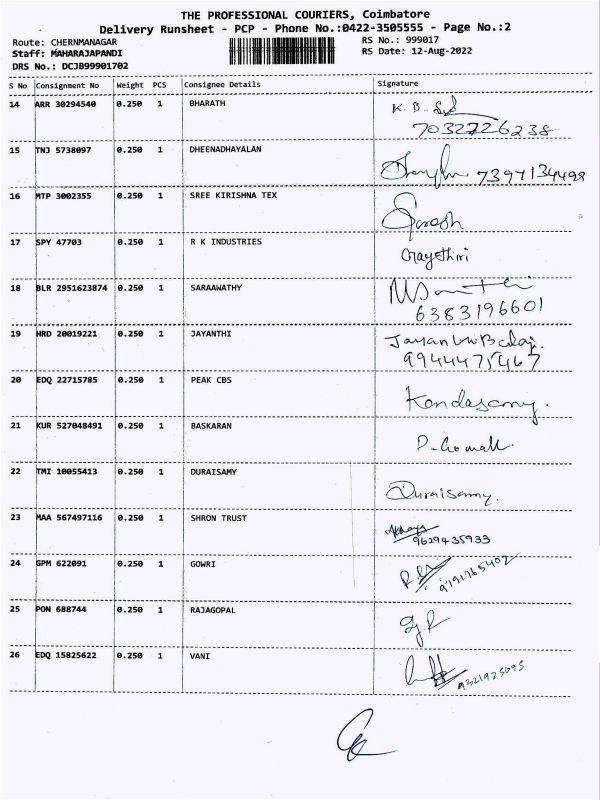 THE PROFESSIONAL COURIERS, Coimbatore
Delivery Runsheet - PCP - Phone No.:0422-3505555 - Page No.:2
Route: CHERNMANAGAR
RS No.: 999017
Staff: MAHARAJAPANDI
RS Date: 12-Aug-2022
DRS No.: DCJB99901702
S No Consignment No Weight PCS Consignee Details Signature
14 ARR 30294540 0.250 1 BHARATH K. B.
7032726238
15 TNJ 5738097 0.250 1 DHEENADHAYALAN 7397134499
16 MTP 3002355 0.250 1 SREE KIRISHNA TEX Suresh
17 SPY 47703 0.250 1 R K INDUSTRIES Gayethiri
18 BLR 2951623874 0.250 1 SARAAWATHY
6383196601
19 HRD 20019221 0.250 1 JAYANTHI
9944475467
20 EDQ 22715785 0.250 1 PEAK CBS Kandasamy.
21 KUR 527048491 0.250 1 BASKARAN
22 TMI 10055413 0.250 1 DURAISAMY Duraisamy.
23 MAA 567497116 0.250 1 SHRON TRUST
9629435933
24 GPM 622091 0.250 1 GOWRI 9791765402
25 PON 688744 0.250 1 RAJAGOPAL
26 EDQ 15825622 0.250 1 VANI